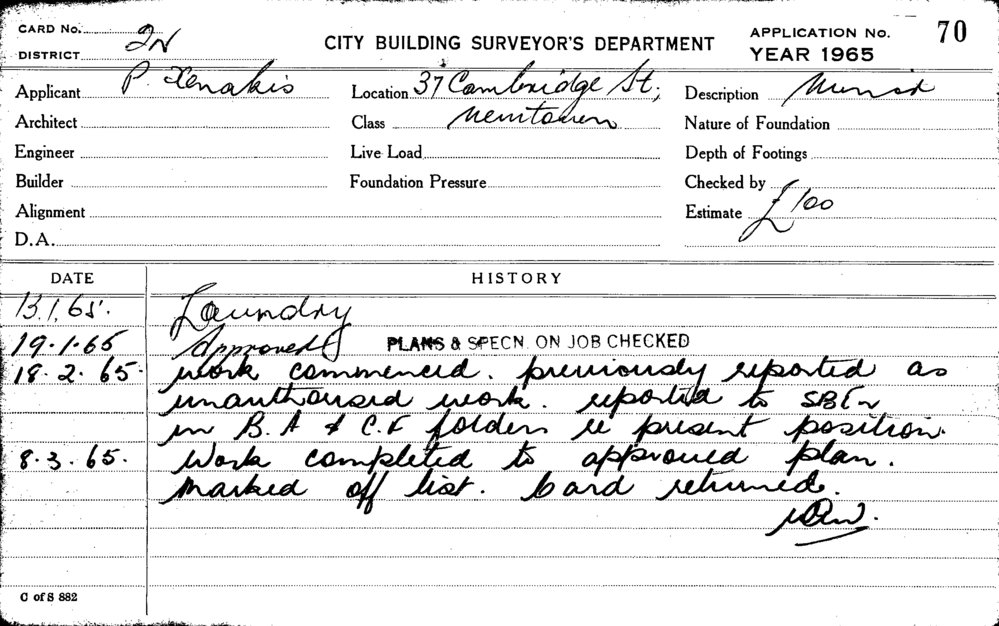 CARD No. 2N
DISTRICT
CITY BUILDING SURVEYOR'S DEPARTMENT
APPLICATION No. 70
YEAR 1965
Applicant P. Xenakis
Location 37 Cambridge St;
Description
Architect
Class Newtown
Nature of Foundation
Engineer
Live Load
Depth of Footings
Builder
Foundation Pressure
Checked by
Alignment
Estimate £100
D.A.
DATE HISTORY
13.1.65. Laundry
19.1.65 Approved PLANS & SPECN. ON JOB CHECKED
18.2.65. work commenced. previously reported as
unauthorised work. reported to
in B.A & C.F folders re present position.
8.3.65. Work completed to approved plan.
Marked off list. Card returned.
C of S 882